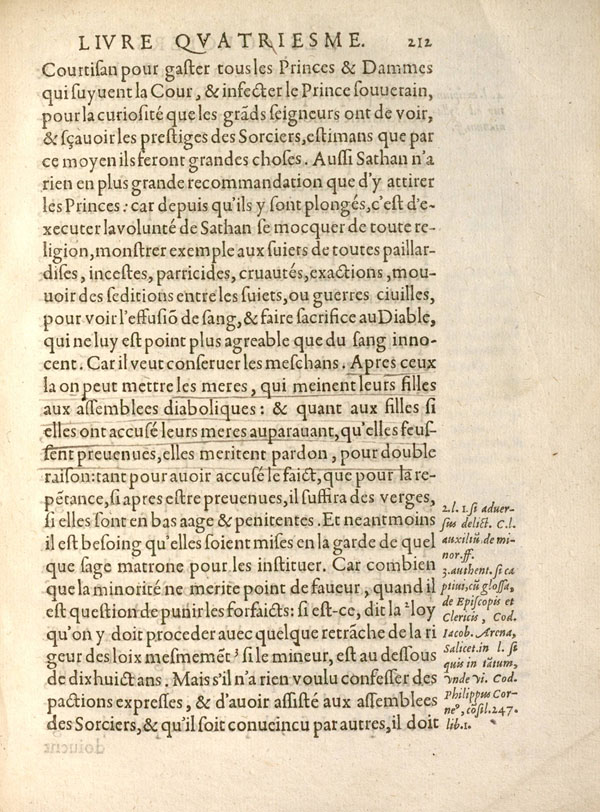 LIVRE QVATRIESME. 212
Courtisan pour gaster tous les Princes & Dammes
qui suyuent la Cour, & infecter le Prince souuerain,
pour la curiosité que les grãds seigneurs ont de voir,
& sçauoir les prestiges des Sorciers, estimans que par
ce moyen ils feront grandes choses. Aussi Sathan n'a
rien en plus grande recommandation que d'y attirer
les Princes: car depuis qu'ils y sont plongés, c'est d'e-
xecuter la volunté de Sathan se mocquer de toute re-
ligion, monstrer exemple aux suiets de toutes paillar-
dises, incestes, parricides, cruautés, exactions, mou-
uoir des seditions entre les suiets, ou guerres ciuilles,
pour voir l'effusiõ de sang, & faire sacrifice au Diable,
qui ne luy est point plus agreable que du sang inno-
cent. Car il veut conseruer les meschans. Apres ceux
la on peut mettre les meres, qui meinent leurs filles
aux assemblees diaboliques: & quant aux filles si
elles ont accusé leurs meres auparauant, qu'elles feus-
sent preuenues, elles meritent pardon, pour double
raison: tant pour auoir accusé le faict, que pour la re-
pẽtance, si apres estre preuenues, il suffira des verges,
si elles sont en bas aage & penitentes. Et neantmoins
il est besoing qu'elles soient mises en la garde de quel
que sage matrone pour les instituer. Car combien
que la minorité ne merite point de faueur, quand il
est question de punir les forfaicts: si est-ce, dit la ²loy
qu'on y doit proceder auec quelque retrãche de la ri
geur des loix mesmemẽt ³ si le mineur, est au dessous
de dixhuict ans. Mais s'il n'a rien voulu confesser des
pactions expresses, & d'auoir assisté aux assemblees
des Sorciers, & qu'il soit conueincu par autres, il doit
doiuent
2.l. 1. si aduer-
sus delict. C.l.
auxiliũ de mi-
nor. ff.
3. authent. si ca
ptiui, cũ glossa,
de Episcopis et
Clericis, Cod.
Iacob. Arena,
Salicet. in l. si
quis in tãtum,
vnde vi. Cod.
Philippus Cor-
neº, cõsil. 247.
lib. 1.